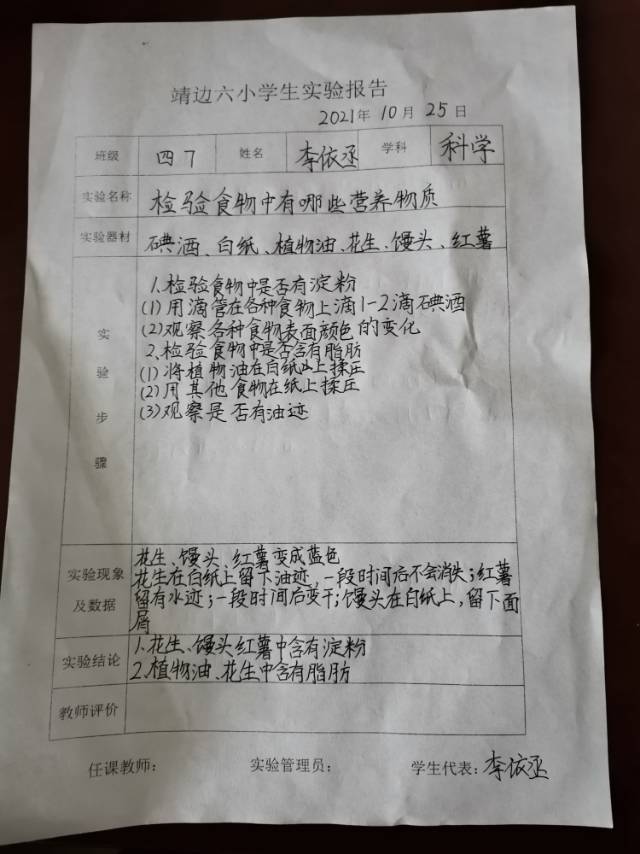 靖边六小学生实验报告
2021年 10月 25日
班级 四7 姓名 李依丞 学科 科学
实验名称 检验食物中有哪些营养物质
实验器材 碘酒、白纸、植物油、花生、馒头、红薯
实验步骤
1.检验食物中是否有淀粉
(1)用滴管在各种食物上滴1-2滴碘酒
(2)观察各种食物表面颜色的变化
2、检验食物中是否含有脂肪
(1)将植物油在白纸上揉压
(2)用其他食物在纸上揉压
(3)观察是否有油迹
实验现象及数据
花生、馒头、红薯变成蓝色
花生在白纸上留下油迹,一段时间后不会消失;红薯
留有水迹;一段时间后变干;馒头在白纸上,留下面
屑
实验结论
1.花生、馒头红薯中含有淀粉
2.植物油、花生中含有脂肪
教师评价
任课教师: 实验管理员: 学生代表:李依丞